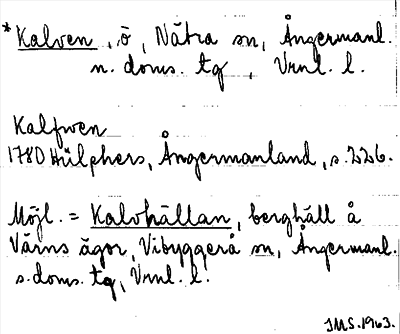 *Kalven, ö, Nätra sn, Ångermanl.
n. doms. tg, Vrnl. l.
Kalfwen
1780 Hülphers, Ångermanland, s. 226.
Möjl. = Kalvhällan, berghäll å
Värns ägor, Vibyggerå sn, Ångermanl.
s. doms. tg, Vrnl. l.
IMS. 1963.